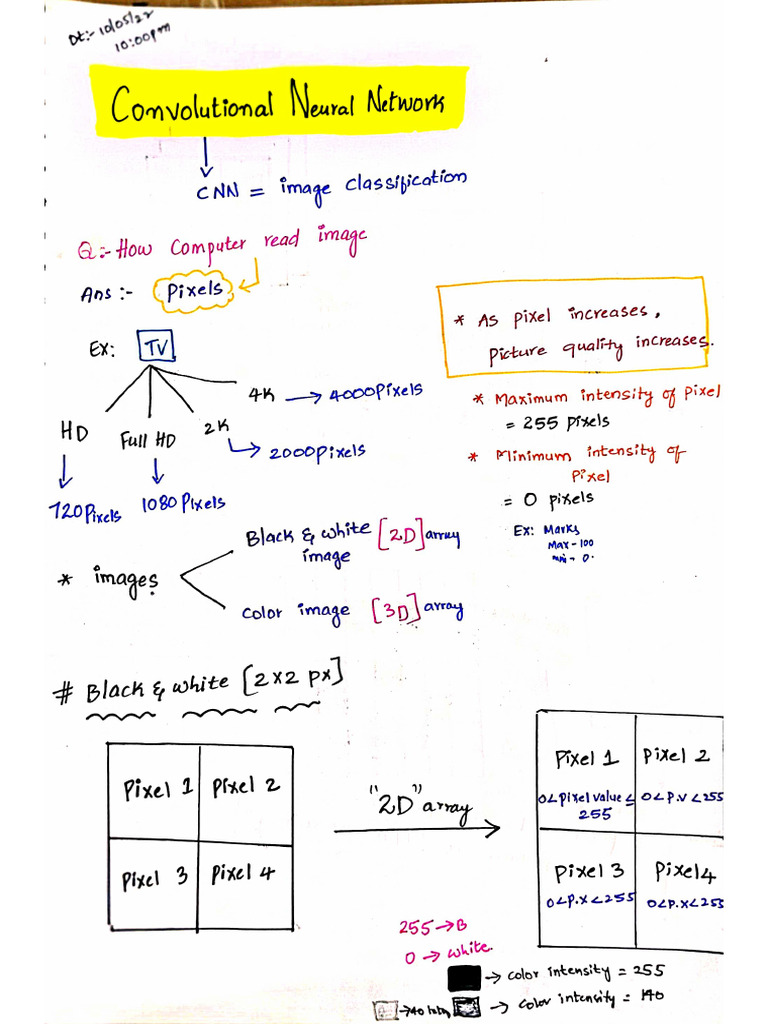 Dt:- 10/05/22
10:00pm
Convolutional Neural Network
CNN = image classification
Q:- How Computer read image
Ans :- Pixels
* As pixel increases,
Picture quality increases.
Ex: TV
4K → 4000 Pixels
2K
→ 2000 pixels
HD
Full HD
720 Pixels
1080 Pixels
* Maximum intensity of Pixel
= 255 pixels
* Minimum intensity of
Pixel
= 0 pixels
Ex: Marks
Max - 100
min - 0.
* images
Black & white [2D] array
image
Color image [3D] array
# Black & white [2x2 px]
Pixel 1 Pixel 2
Pixel 3 Pixel 4
"2D" array
Pixel 1 Pixel 2
0<pixel value ≤
255
0<P.v<255
Pixel 3 Pixel4
0<P.x<255 0<P.x<255
255 → B
0 → white.
→ color intensity = 255
→ color intensity = 140